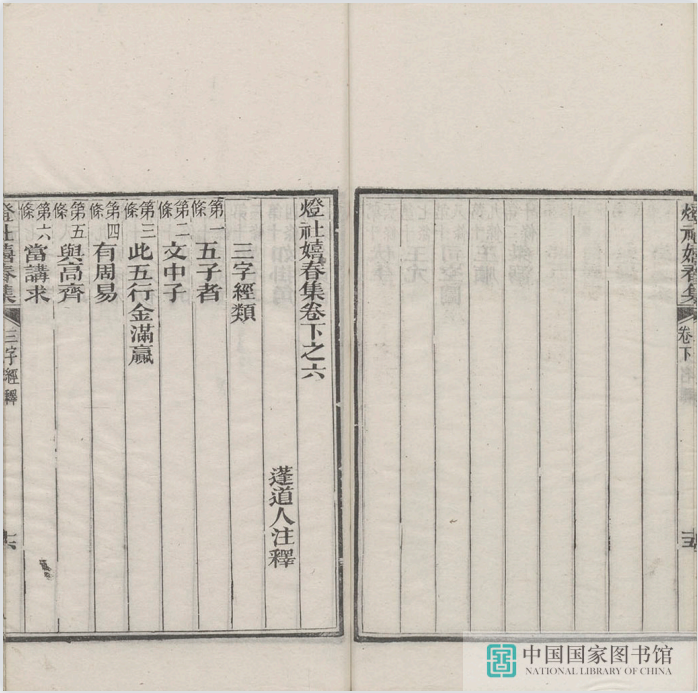 燈社嬉春集
卷下
燈社嬉春集卷下之六
蓬道人注釋
三字經類
第一條 五子者
第二條 文中子
第三條 此五行金滿籯
第四條 有周易
第五條 與高齊
第六條 當講求
燈社嬉春集
三字經釋
中国国家图书馆
NATIONAL LIBRARY OF CHINA